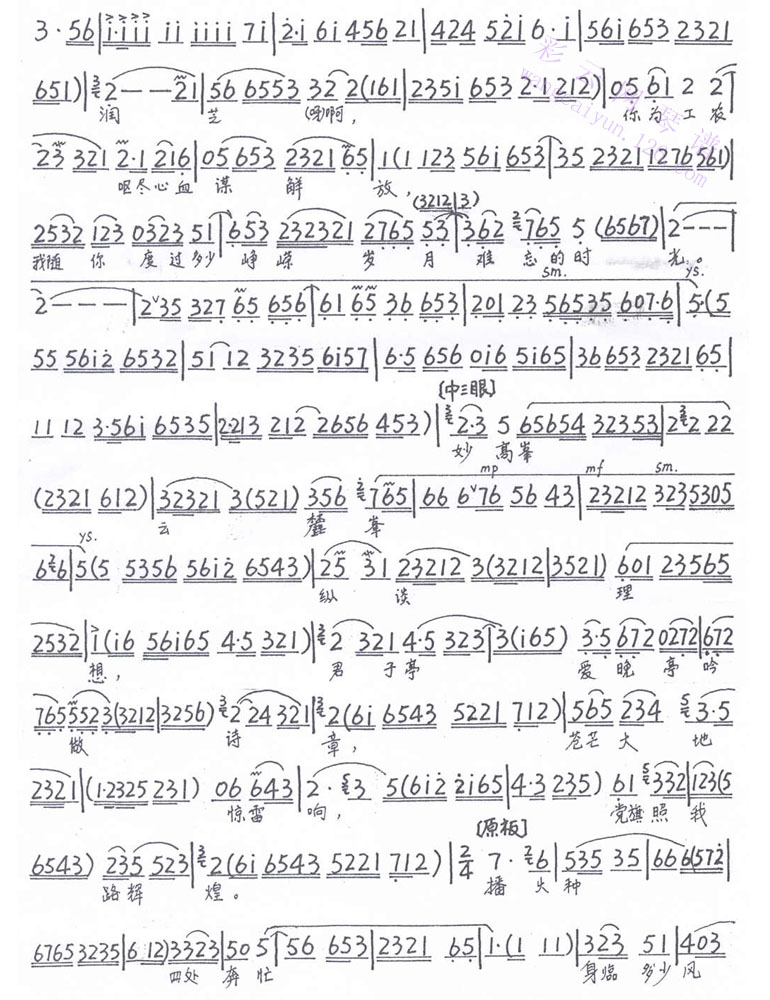 3·56|i·iii ii iiii 7i|2·i 6i 456 21|424 52i 6·i|56i 653 2321
651)|2--21|56 6553 32 2(161|2351 6532·1 212)|05 61 2 2
润 芝 (呀)啊, 你为工农
23 321 2·1 216|05 653 2321 65|1(1 123 561 653|35 2321 1276 561)
呕尽心血谋 解 放,
(3212|3)
2532 123 0323 51|653 232321 2765 53|362 765 5 (6567)|2---|
我随 你 度过多少 峥嵘 岁 月 难 忘的时 光。
sm. ys.
2---|2 35 327 65 656|61 65 36 653|201 23 56535 607·6|5·(5
55 56i2 6532|51 12 3235 6i57|6·5 656 0i6 5i65|36 653 2321 65|
[中三眼]
11 12 3·56i 6535|2·213 212 2656 453)|2·3 5 65654 32353|2 2 22
妙 高峯
mp mf sm.
(2321 612)|32321 3(521) 356 765|66 676 56 43|23212 3235305
云 麓 峯
ys.
6 6|5(5 5356 56i2 6543)|25 31 23212 3(3212|3521) 601 23565
纵 谈 理
2532|i(i6 56i65 4·5 321)|2 321 4·5 323|3(i65) 3·5 672 0272|672
想, 君 子亭 爱晚 亭 吟
765 5523(3212|3256) 2 24 321|2(6i 6543 5221 712)|565 234 3·5
做 诗 章, 苍芒 大 地
2321|(1·2325 231) 06 643|2· 3 5(6i2 2i65|4·3 235) 61 332|123(5
惊雷 响, 党旗照 我
[原板]
6543) 235 523|2(6i 6543 5221 712)|2/4 7· 6|535 35|66 6(572
路辉 煌。 播 火种
6765 3235|6 12)3323|50 5|56 653|2321 65|1·(1 11)|323 51|403
四处 奔 忙 身临 多少风